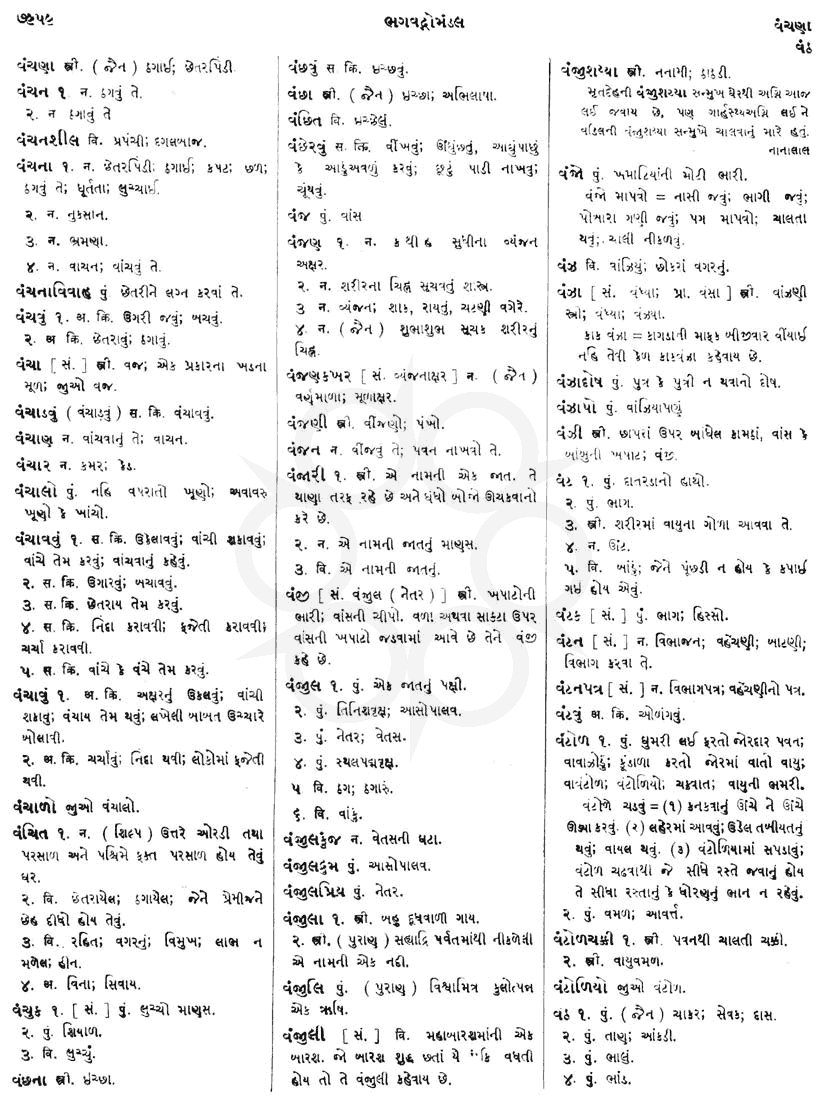 ૭૯૫૯
ભગવદ્ગોમંડલ
વંચણા
વંઠ
વંચણા સ્ત્રી. (જૈન) ઠગાઈ; છેતરપિંડી.
વંચન ૧ ન. ઠગવું તે.
૨. ન ઠગાવું તે
વંચનશીલ વિ. પ્રપંચી; દગલબાજ.
વંચના ૧. ન. છેતરપિંડી; ઠગાઈ; કપટ; છળ;
ઠગવું તે; ધૂર્તતા; લુચ્ચાઈ.
૨. ન. નુકસાન.
૩. ન. ભ્રમણા.
૪. ન. વાચન; વાંચવું તે.
વંચનાવિવાહ પું છેતરીને લગ્ન કરવાં તે.
વંચવું ૧. અ. ક્રિ. ઉગરી જવું; બચવું.
૨. અ ક્રિ. છેતરાવું; ઠગાવું.
વંચા [ સં. ] સ્ત્રી. વજ; એક પ્રકારના ખડના
મૂળ; જુઓ વજ.
વંચાડવું (વંચાડ઼વું) સ. ક્રિ. વંચાવવું.
વંચાણ ન. વાંચવાનું તે; વાચન.
વંચાર ન. કમર; કેડ.
વંચાલો પું. નહિ વપરાતો ખૂણો; અવાવરુ
ખૂણો કે ખાંચો.
વંચાવવું ૧. સ. ક્રિ. ઉકેલાવવું; વાંચી શકાવવું;
વાંચે તેમ કરવું; વાંચવાનું કહેવું.
૨. સ. ક્રિ. ઉગારવું; બચાવવું.
૩. સ. ક્રિ. છેતરાય તેમ કરવું.
૪. સ. ક્રિ. નિંદા કરાવવી; ફજેતી કરાવવી;
ચર્ચા કરાવવી.
૫. સ. ક્રિ. વાંચે કે વંચે તેમ કરવું.
વંચાવું ૧. અ. ક્રિ. અક્ષરનું ઉકલવું; વાંચી
શકાવું; વંચાય તેમ થવું; લખેલી બાબત ઉચ્ચારે
બોલાવી.
૨. અ. ક્રિ. ચર્ચાવું; નિંદા થવી; લોકોમાં ફજેતી
થવી.
વંચાળો જુઓ વંચાલો.
વંચિત ૧. ન. (શિલ્પ) ઉત્તરે ઓરડી તથા
પરસાળ અને પશ્ચિમે ફક્ત પરસાળ હોય તેવું
ઘર.
૨. વિ. છેતરાયેલ; ઠગાયેલ; જેને પ્રેમીજને
છેહ દીધો હોય તેવું.
૩. વિ. રહિત; વગરનું; વિમુખ; લાભ ન
મળેલ; હીન.
૪. અ. વિના; સિવાય.
વંચુક ૧. [ સં. ] પું. લુચ્ચો માણસ.
૨. પું. શિયાળ.
૩. વિ. લુચ્ચું.
વંછના સ્ત્રી. ઇચ્છા.
વંછવું સ. ક્રિ. ઇચ્છવું.
વંછા સ્ત્રી. (જૈન) ઇચ્છા; અભિલાષા.
વંછિત વિ. ઇચ્છેલું.
વંછેરવું સ. ક્રિ. વીંખવું; ઊંધુંછતું, આઘુંપાછું
કે આડુંઅવળું કરવું; છૂટું પાડી નાખવું;
ચૂંથવું.
વંજ પું. વાંસ
વંજણ ૧. ન. ક થી હ સુધીના વ્યંજન
અક્ષર.
૨. ન. શરીરના ચિહ્ન સૂચવતું શાસ્ત્ર.
૩ ન. વ્યંજન; શાક, રાયતું, ચટણી વગેરે.
૪. ન. (જૈન) શુભાશુભ સૂચક શરીરનું
ચિહ્ન.
વંજણક્ખર [ સં. વ્યંજનાક્ષર ] ન. (જૈન)
વર્ણમાળા; મૂળાક્ષર.
વંજણી સ્ત્રી. વીંજણો; પંખો.
વંજન ન. વીંજવું તે; પવન નાખવો તે.
વંજારી ૧. સ્ત્રી. એ નામની એક જાત. તે
થાણા તરફ રહે છે અને ધંધો બોજો ઊચકવાનો
કરે છે.
૨. ન. એ નામની જાતનું માણસ.
૩. વિ. એ નામની જાતનું.
વંજી [ સં. વંજુલ (નેતર) ] સ્ત્રી. ખપાટોની
ભારી; વાંસની ચીપો. વળા અથવા સાકટા ઉપર
વાંસની ખપાટો જડવામાં આવે છે તેને વંજી
કહે છે.
વંજુલ ૧. પું. એક જાતનું પક્ષી.
૨. પું. તિનિશવૃક્ષ; આસોપાલવ.
૩. પું. નેતર; વેતસ.
૪. પું. સ્થલપદ્મવૃક્ષ.
૫ વિ. ઠગ; ઠગારું.
૬. વિ. વાંકું.
વંજુલકુંજ ન. વેતસની ઘટા.
વંજુલદ્રુમ પું. આસોપાલવ.
વંજુલપ્રિય પું. નેતર.
વંજુલા ૧. સ્ત્રી. બહુ દૂધવાળી ગાય.
૨. સ્ત્રી. (પુરાણ) સહ્યાદ્રિ પર્વતમાંથી નીકળેલી
એ નામની એક નદી.
વંજુલિ પું. (પુરાણ) વિશ્વામિત્ર કુલોત્પન્ન
એક ઋષિ.
વંજુલી [ સં. ] વિ. મહાબારશમાંની એક
બારશ. જો બારશ શુદ્ધ છતાં યે કિ વધતી
હોય તો તે વંજુલી કહેવાય છે.
વંજુશય્યા સ્ત્રી. નનામી; ઠાઠડી.
મૃતદેહની વંજુશય્યા સન્મુખ ઘેરથી અગ્નિ આજ
લઈ જવાય છે, પણ ગાર્હસ્થ્યઅગ્નિ લઈ ને
વડિલની વંજુશય્યા સન્મુખે ચાલવાનું મારે હતું.
નાનાલાલ
વંજો પું. ખમાટિયાંની મોટી ભારી.
વંજો માપવો = નાસી જવું; ભાગી જવું;
પોબારા ગણી જવું; પગ માપવો; ચાલતા
થવું; ચાલી નીકળવું.
વંઝ વિ. વાંઝિયું; છોકરાં વગરનું.
વંઝા [ સં. વંધ્યા; પ્રા. વંસા ] સ્ત્રી. વાંઝણી
સ્ત્રી; વંધ્યા; વંઝ્યા.
કાક વંઝા = કાગડાની માફક બીજીવાર વીંયાઈ
નહિ તેવી કેળ કાકવંઝા કહેવાય છે.
વંઝાદોષ પું. પુત્ર કે પુત્રી ન થવાનો દોષ.
વંઝાપો પું. વાંઝિયાપણું
વંઝી સ્ત્રી. છાપરાં ઉપર બાંધેલ કામઠાં, વાંસ કે
બાંબુની ખપાટ; વંજી.
વંટ ૧. પું. દાતરડાનો હાથો.
૨. પું. ભાગ.
૩. સ્ત્રી. શરીરમાં વાયુના ગોળા આવવા તે.
૪. ન. ઊંટ.
૫. વિ. બાંડું; જેને પૂંછડી ન હોય કે કપાઈ
ગઈ હોય એવું.
વંટક [ સં. ] પું. ભાગ; હિસ્સો.
વંટન [ સં. ] ન. વિભાજન; વહેંચણી; બાટણી;
વિભાગ કરવા તે.
વંટનપત્ર [ સં. ] ન. વિભાગપત્ર; વહેંચણીનો પત્ર.
વંટવું અ. ક્રિ. ઓળંગવું.
વંટોળ ૧. પું. ઘુમરી લઈ ફરતો જોરદાર પવન;
વાવાઝોડું; કૂંડાળા ફરતો જોરમાં વાતો વાયુ;
વાવંટોળ; વંટોળિયો; ચક્રવાત; વાયુની ભમરી.
વંટોળે ચડવું = (૧) કનકવાનું ઊંચે ને ઊંચે
ઊડ્યા કરવું. (૨) લહેરમાં આવવું; ઉડેલ તબીયતનું
થવું; વાયલ થવું. (૩) વંટોળિયામાં સપડાવું;
વંટોળ ચઢવાથી જે સીધે રસ્તે જવાનું હોય
તે સીધા રસ્તાનું કે ધોરણનું ભાન ન રહેવું.
૨. પું. વમળ; આવર્ત્ત.
વંટોળચક્કી ૧. સ્ત્રી. પવનથી ચાલતી ચક્કી.
૨. સ્ત્રી. વાયુવમળ.
વંટોળિયો જુઓ વંટોળ.
વંઠ ૧. પું. (જૈન) ચાકર; સેવક; દાસ.
૨. પું. તાણુ; આંકડી.
૩. પું. ભાલું.
૪. પું. ભાંડ.